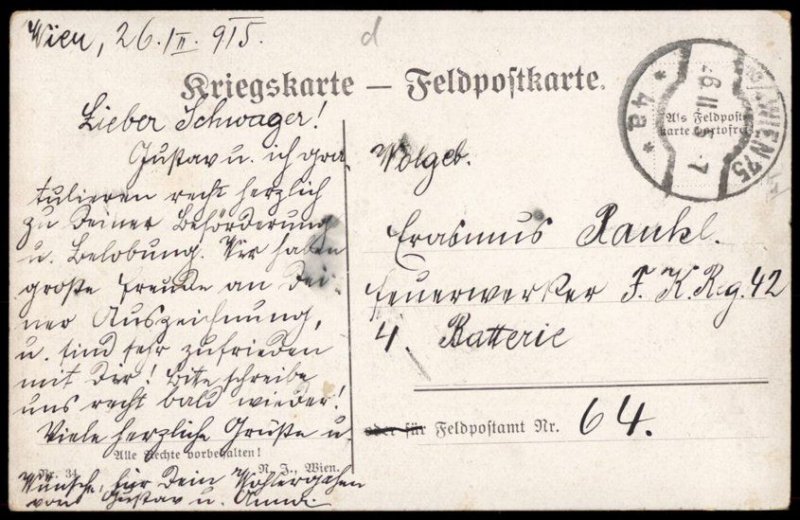 Wien, 26. II. 915.
d
Kriegskarte — Feldpostkarte.
Als Feldpost-
karte portofrei
9/1 WIEN 75
26 II 15 7
* 4a *
Lieber Schwager!
Gustav u. ich gra-
tulieren recht herzlich
zu Deiner Beförderung
u. Belobung. Wir haben
große Freude an Dei-
ner Auszeichnung,
u. sind sehr zufrieden
mit Dir! Bitte schreibe
uns recht bald wieder!
Viele herzliche Grüße u.
Alle Rechte vorbehalten!
Nr. 34. R. J., Wien.
Wünsche, für Dein Wohlergehen
von Gustav u. Anna.
Wolgeb.
Erasmus Pankl.
Feuerwerker F. K. Rg. 42
4. Batterie
oder für Feldpostamt Nr. 64.